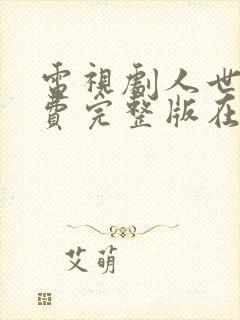 電視劇人世
費完整版在
艾萌